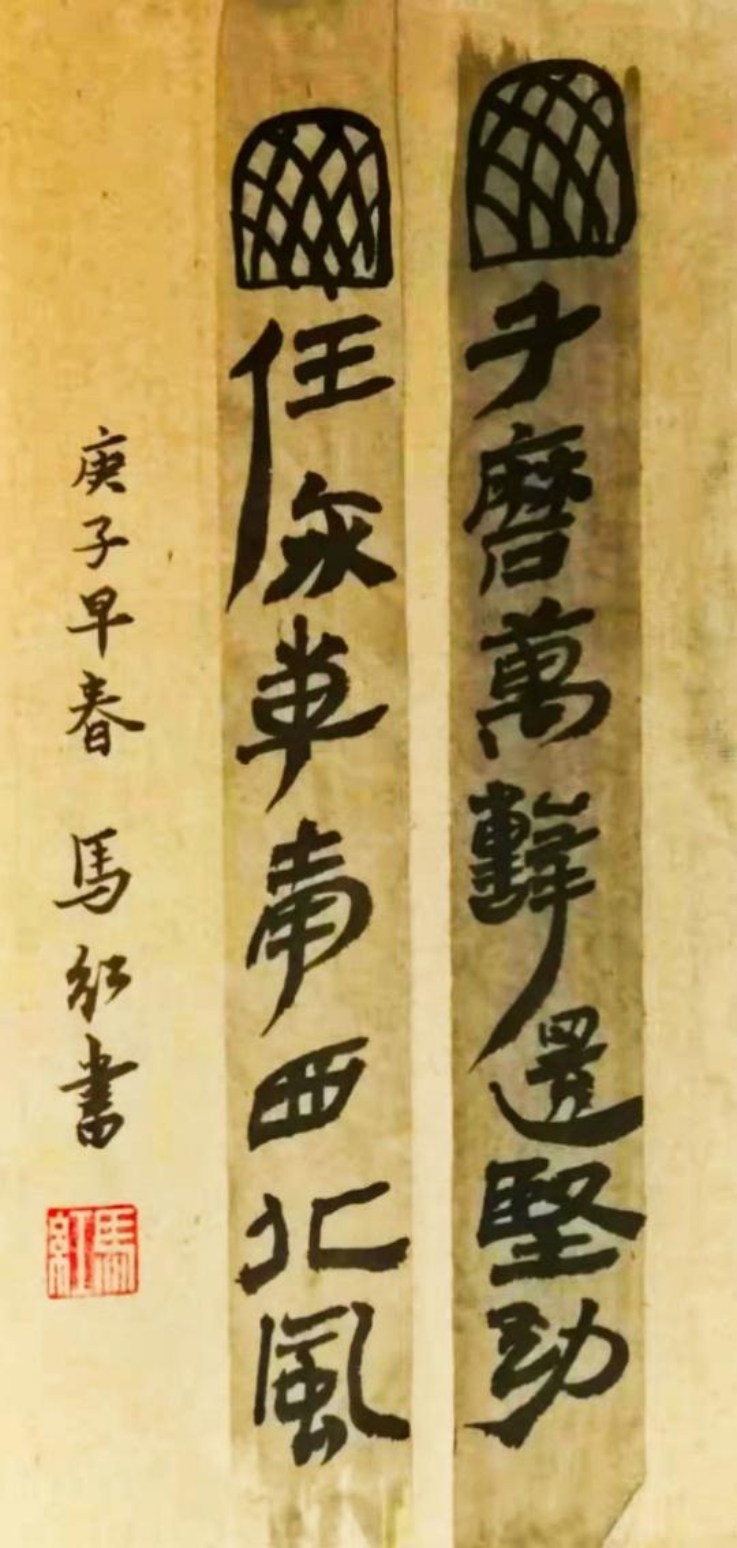 千磨萬擊還堅勁
任尔東南西北風
庚子早春 馬紅書
馬紅